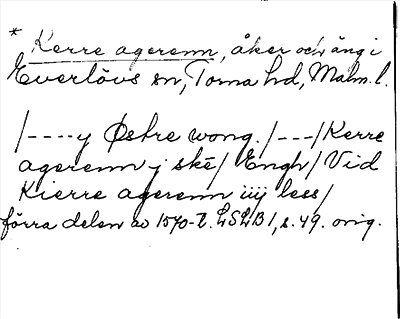 * Kerre agerenn, åker och äng i
Everlövs sn, Torna hd, Malm. l.
/----y Østre wong. /---/ Kerre
agerenn j skē / Engh / Vid
Kierre agerenn iiij less /
förra delen av 1570-t. LSLB 1, s. 49. orig.